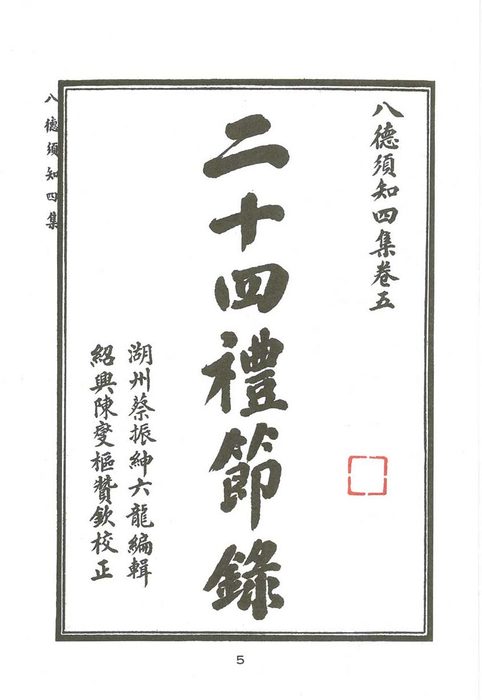 八德須知四集卷五
二十四禮節錄
湖州蔡振紳六龍編輯
紹興陳燮樞贊欽校正
八德須知四集
5